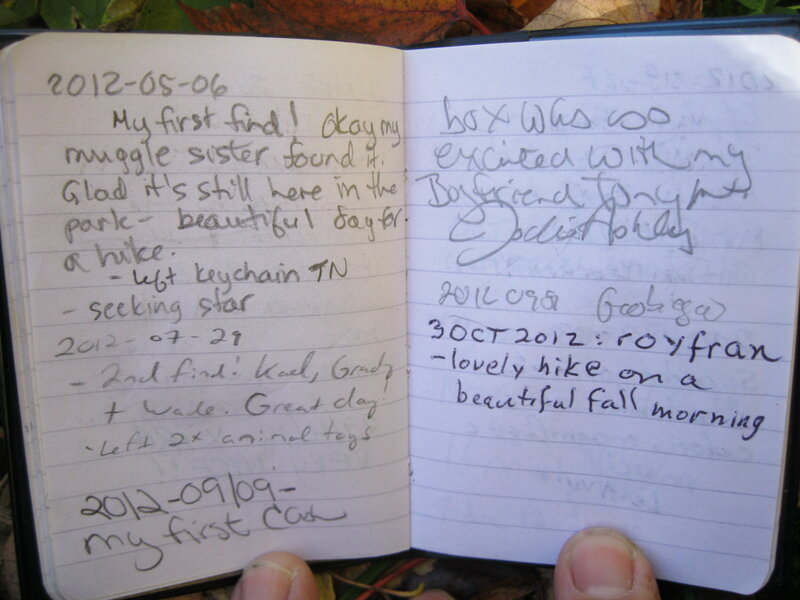 2012-05-06
My first find! Okay my
muggle sister found it.
Glad it's still here in the
park- beautiful day for
a hike.
- Left keychain TN
- seeking star
2012-07-29
- 2nd find! Kael, Grady
+ Wade. Great day!
- Left 2x animal toys
2012-09/09-
my first Cash
box was soo
excited with my
Boyfriend Tony
Ashley
3 OCT 2012: royfran
-lovely hike on a
beautiful fall morning